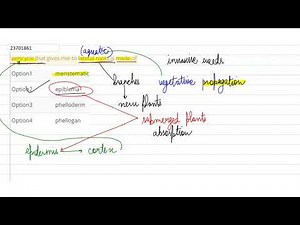 23701861
(aquatic)
invasive weeds
that gives rise to lateral roots is made of
Option1 meristematic
branches
vegetative propagation
Option2 epiblema
new plants
Option3 phelloderm
submerged plants
Option4 phellogen
absorption
epidermis
cortex